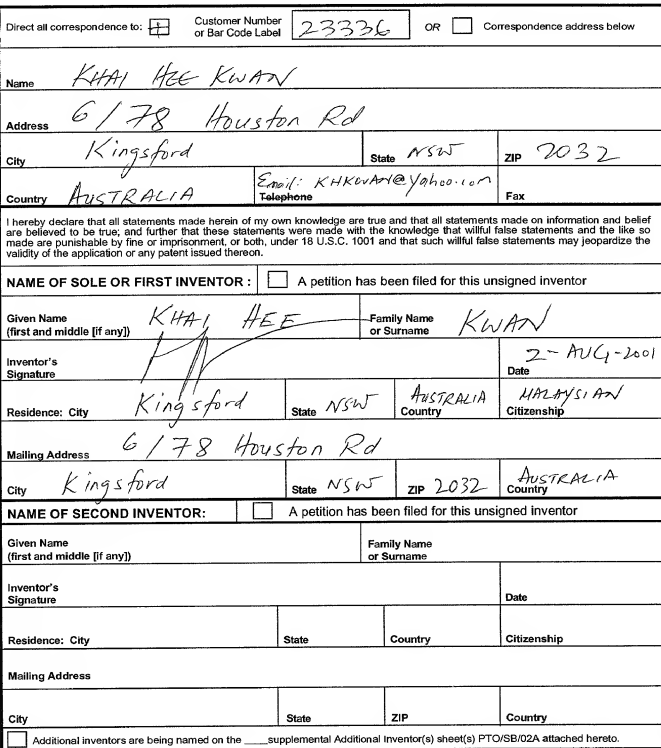 Direct all correspondence to: Customer Number or Bar Code Label 23336 OR Correspondence address below
Name KHAI HEE KWAN
Address 6/78 Houston Rd
City Kingsford State NSW ZIP 2032
Country AUSTRALIA Telephone Email: KHKWAN@yahoo.com Fax
I hereby declare that all statements made herein of my own knowledge are true and that all statements made on information and belief
are believed to be true; and further that these statements were made with the knowledge that willful false statements and the like so
made are punishable by fine or imprisonment, or both, under 18 U.S.C. 1001 and that such willful false statements may jeopardize the
validity of the application or any patent issued thereon.
NAME OF SOLE OR FIRST INVENTOR : A petition has been filed for this unsigned inventor
Given Name (first and middle [if any]) KHAI HEE Family Name or Surname KWAN
Inventor's Signature 2-AUG-2001 Date
Residence: City Kingsford State NSW Country AUSTRALIA Citizenship MALAYSIAN
Mailing Address 6/78 Houston Rd
City Kingsford State NSW ZIP 2032 Country AUSTRALIA
NAME OF SECOND INVENTOR: A petition has been filed for this unsigned inventor
Given Name (first and middle [if any]) Family Name or Surname
Inventor's Signature Date
Residence: City State Country Citizenship
Mailing Address
City State ZIP Country
Additional inventors are being named on the ____supplemental Additional Inventor(s) sheet(s) PTO/SB/02A attached hereto.